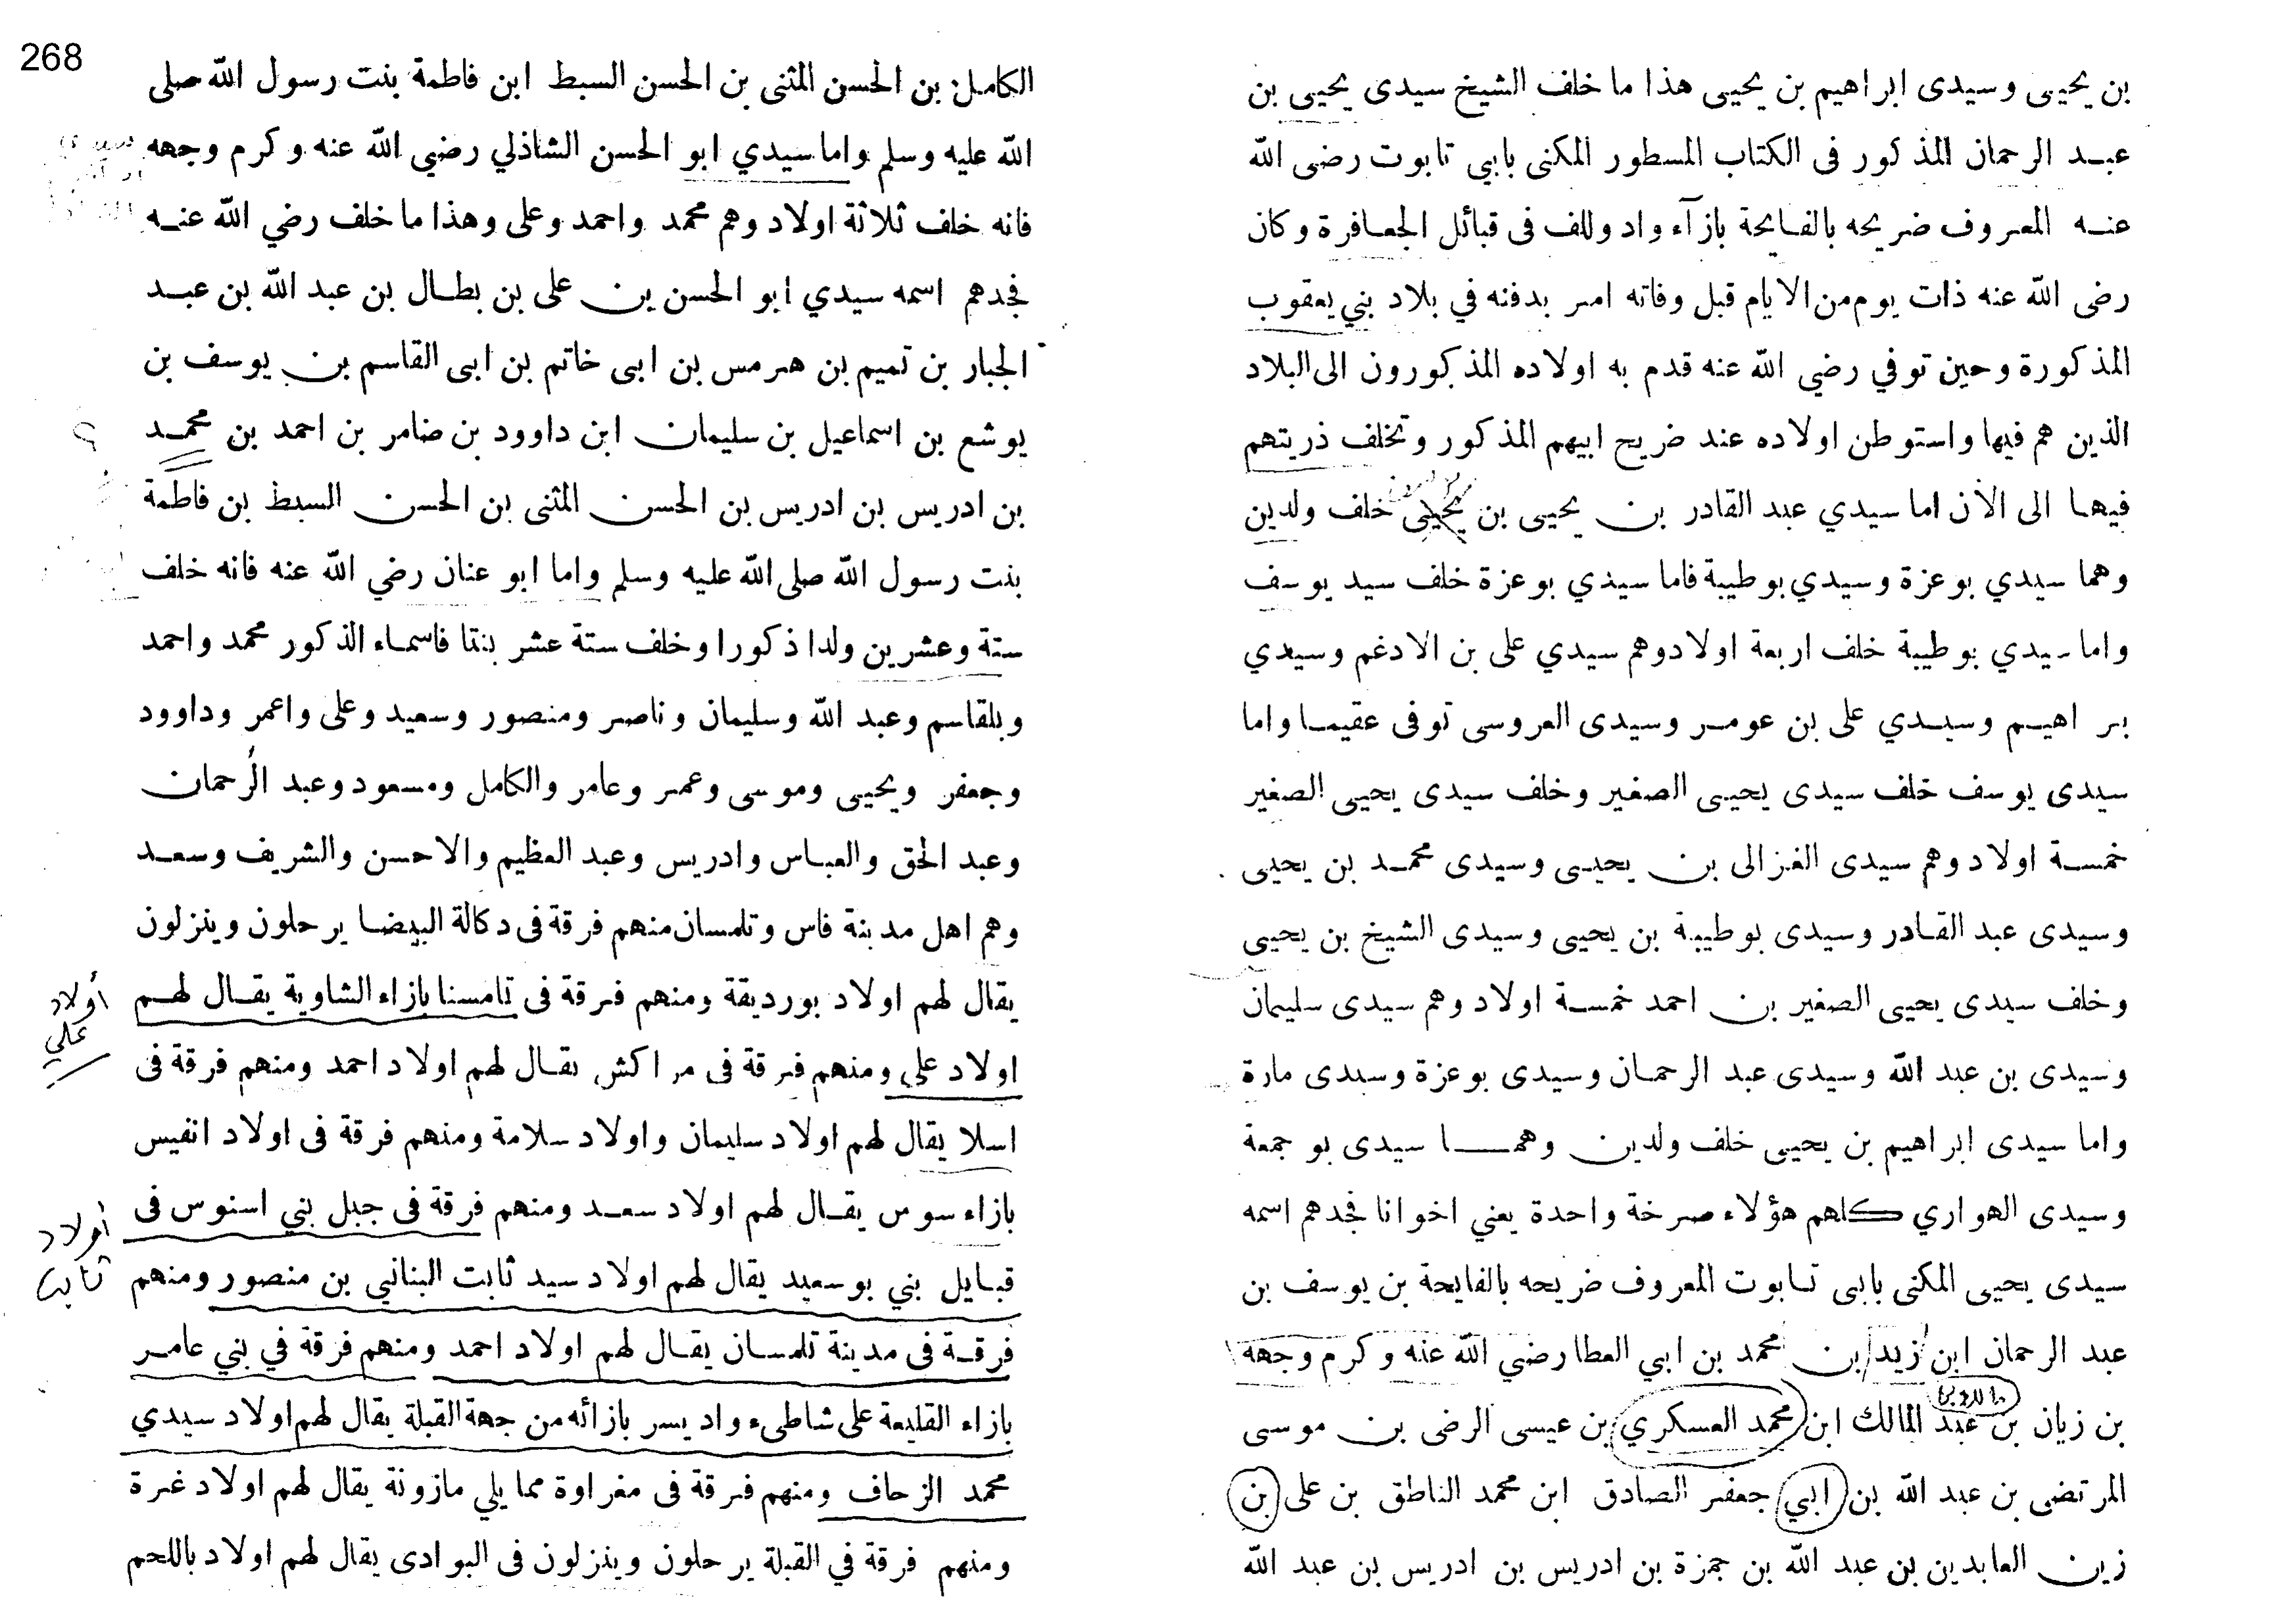 بن يحيى وسيدى ابراهيم بن يحيى هذا ما خلف الشيخ سيدى يحيى بن
عبد الرحمان المذكور فى الكتاب المسطور المكنى بابي تابوت رضى الله
عنه المعروف ضريحه بالفايحة بازآء واد وللف فى قبائل الجعافرة وكان
رضى الله عنه ذات يوم من الايام قبل وفاته امر بدفنه في بلاد بني يعقوب
المذكورة وحين توفي رضي الله عنه قدم به اولاده المذكورون الى البلاد
الذين هم فيها واستوطن اولاده عند ضريح ابيهم المذكور وتخلف ذريتهم
فيها الى الأن اما سيدي عبد القادر بن يحيى بن يحيى خلف ولدين
وهما سيدي بوعزة وسيدي بوطيبة فاما سيدي بوعزة خلف سيد يوسف
واما سيدي بوطيبة خلف اربعة اولادوهم سيدي على بن الادغم وسيدي
براهيم وسيدي على بن عومر وسيدى العروسى توفى عقيما واما
سيدى يوسف خلف سيدى يحيى الصغير وخلف سيدى يحيى الصغير
خمسة اولاد وهم سيدى الغزالى بن يحيى وسيدى محمد بن يحيى
وسيدى عبد القادر وسيدى بوطيبة بن يحيى وسيدى الشيخ بن يحيى
وخلف سيدى يحيى الصغير بن احمد خمسة اولاد وهم سيدى سليمان
وسيدى بن عبد الله وسيدى عبد الرحمان وسيدى بوعزة وسيدى مارة
واما سيدى ابراهيم بن يحيى خلف ولدين وهما سيدى بو جمعة
وسيدى الهواري كلهم هؤلاء صرخة واحدة يعني اخوانا فجدهم اسمه
سيدى يحيى المكنى بابى تابوت المعروف ضريحه بالفايحة بن يوسف بن
عبد الرحمان ابن زيد بن محمد بن ابي العطا رضي الله عنه وكرم وجهه
بن زيان بن عبد المالك ابن محمد العسكري بن عيسى الرضى بن موسى
المرتضى بن عبد الله بن ابي جعفر الصادق ابن محمد الناطق بن على بن
زين العابدين بن عبد الله بن حمزة بن ادريس بن ادريس بن عبد الله
268
الكامل بن الحسن المثنى بن الحسن السبط ابن فاطمة بنت رسول الله صلى
الله عليه وسلم واما سيدي ابو الحسن الشاذلي رضي الله عنه وكرم وجهه
فانه خلف ثلاثة اولاد وهم محمد واحمد وعلى وهذا ما خلف رضي الله عنه
فجدهم اسمه سيدي ابو الحسن بن على بن بطال بن عبد الله بن عبد
الجبار بن تميم بن هرمس بن ابى خاتم بن ابى القاسم بن يوسف بن
يوشع بن اسماعيل بن سليمان ابن داوود بن ضامر بن احمد بن محمد
بن ادريس بن ادريس بن الحسن المثنى بن الحسن السبط بن فاطمة
بنت رسول الله صلى الله عليه وسلم واما ابو عنان رضي الله عنه فانه خلف
ستة وعشرين ولدا ذكورا وخلف ستة عشر بنتا فاسماء الذكور محمد واحمد
وبلقاسم وعبد الله وسليمان وناصر ومنصور وسعيد وعلى واعمر وداوود
وجعفر ويحيى وموسى وعمر وعامر والكامل ومسعود وعبد الرحمان
وعبد الحق والعباس وادريس وعبد العظيم والاحسن والشريف وسعد
وهم اهل مدينة فاس وتلمسان منهم فرقة فى دكالة البيضا يرحلون وينزلون
يقال لهم اولاد بورديقة ومنهم فرقة فى تامسنا بازاء الشاوية يقال لهم
أولاد
علي
اولاد على ومنهم فرقة فى مراكش يقال لهم اولاد احمد ومنهم فرقة فى
اسلا يقال لهم اولاد سليمان واولاد سلامة ومنهم فرقة فى اولاد انفيس
بازاء سوس يقال لهم اولاد سعد ومنهم فرقة فى جبل بني اسنوس فى
أولاد
ثابت
قبايل بني بوسعيد يقال لهم اولاد سيد ثابت البناني بن منصور ومنهم
فرقة فى مدينة تلمسان يقال لهم اولاد احمد ومنهم فرقة في بني عامر
بازاء القليعة على شاطىء واد يسر بازائه من جهة القبلة يقال لهم اولاد سيدي
محمد الزحاف ومنهم فرقة فى مغراوة مما يلي مازونة يقال لهم اولاد غرة
ومنهم فرقة في القبلة يرحلون وينزلون فى البوادى يقال لهم اولاد باللحم